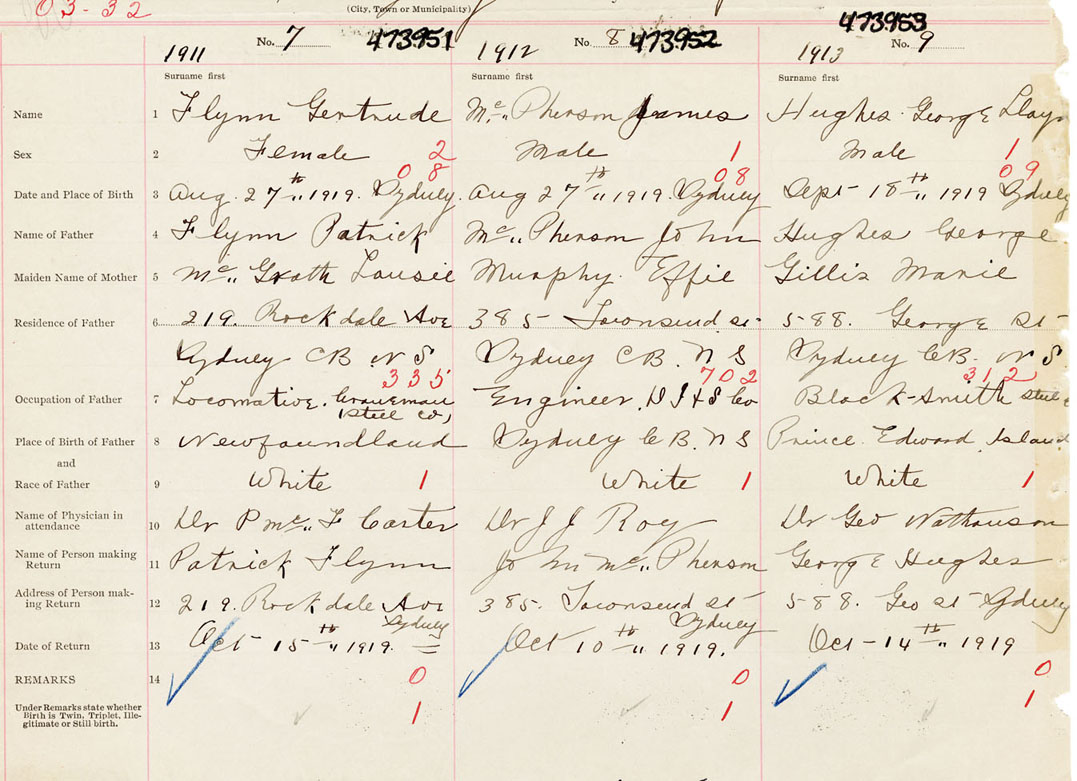 03-32
(City, Town or Municipality)
1911 No. 7 473951 1912 No. 8 473952 1913 473953 No. 9
Surname first Surname first Surname first
Name 1 Flynn Gertrude Mc„ Pherson James Hughes George
Sex 2 Female 2 Male 1 Male 1
08 08 09
Date and Place of Birth 3 Aug. 27th„ 1919. Sydney. Aug 27th„ 1919. Sydney Sept 18th„ 1919 Sydney
Name of Father 4 Flynn Patrick Mc„ Pherson John Hughes George
Maiden Name of Mother 5 Mc„ Grath Lousie Murphy. Effie Gillis Marie
Residence of Father 6 219. Rockdale Ave 385 Townsend St 588. George St
Sydney CB. N S Sydney CB. N S Sydney CB. N S
335 702 312
Occupation of Father 7 Locomative. (Steel Co) Engineer. D I & S Co Black-Smith Steel
Place of Birth of Father 8 Newfoundland Sydney CB. N S Prince Edward Island
and
Race of Father 9 White 1 White 1 White 1
Name of Physician in
attendance 10 Dr P Mc„ F Carter Dr J J Roy Dr Geo Nathanson
Name of Person making
Return 11 Patrick Flynn John Mc„ Pherson George Hughes
Address of Person mak-
ing Return 12 219. Rockdale Ave Sydney 385. Townsend St Sydney 588. Geo St Sydney
Date of Return 13 Oct 15th„ 1919. Oct 10th„ 1919. Oct-14th„ 1919
REMARKS 14 0 0 0
Under Remarks state whether
Birth is Twin, Triplet, Ille-
gitimate or Still birth. 1 1 1